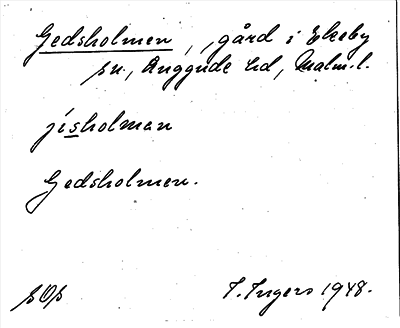 Gedsholmen, , gård i Ekeby
sn., Luggude hd, Malm.l.
jísholman
Gedsholmen.
sOp
I. Ingers 1948.